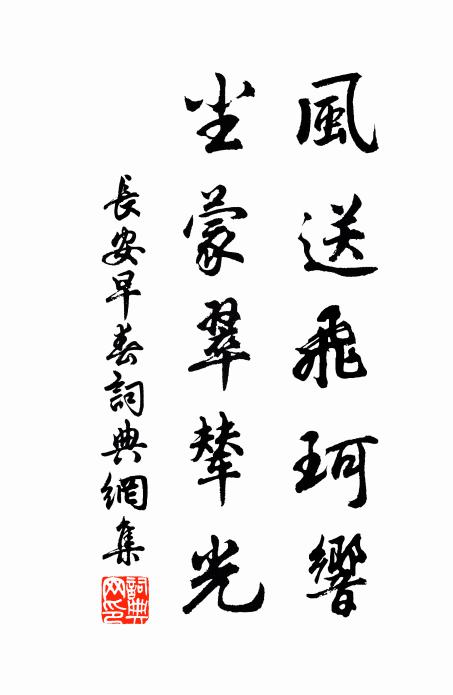 風送飛珂響
尘蒙翠輦光
長安早春詞典網集
詞典網印